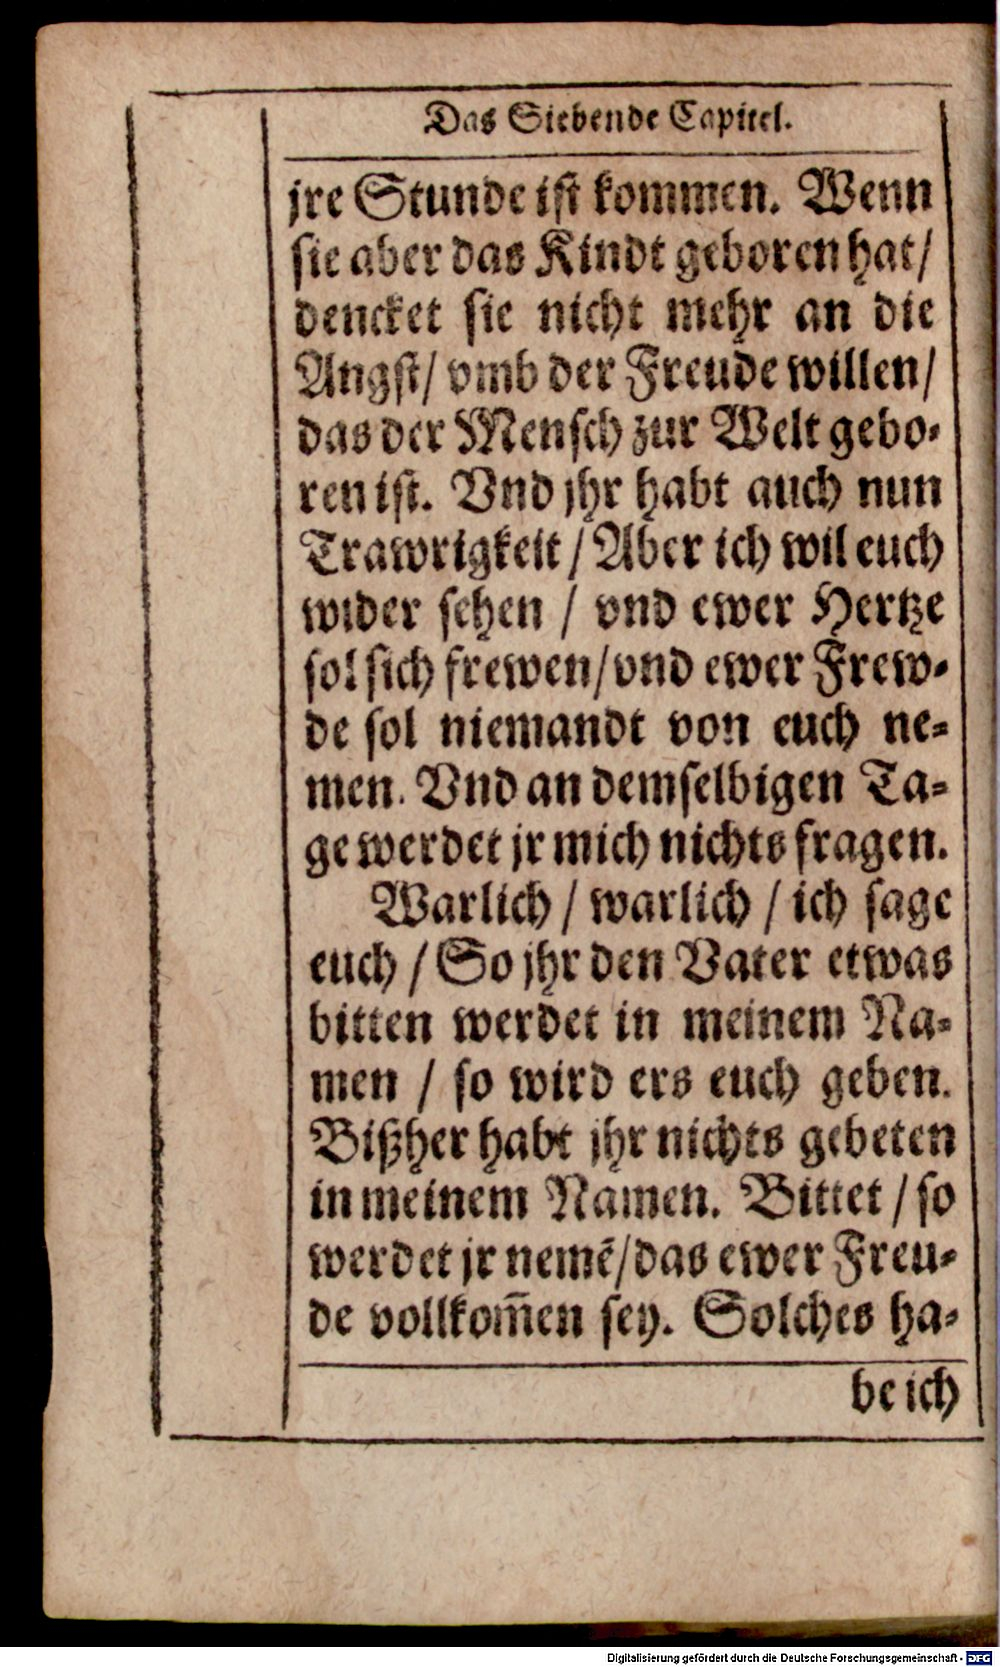 Das Siebende Capitel.
jre Stunde ist kommen. Wenn
sie aber das Kindt geboren hat/
dencket sie nicht mehr an die
Angst/ vmb der Freude willen/
das der Mensch zur Welt gebo-
ren ist. Vnd jhr habt auch nun
Trawrigkeit / Aber ich wil euch
wider sehen / vnd ewer Hertze
sol sich frewen/ vnd ewer Frew-
de sol niemandt von euch ne-
men. Vnd an demselbigen Ta-
ge werdet jr mich nichts fragen.
Warlich / warlich / ich sage
euch / So jhr den Vater etwas
bitten werdet in meinem Na-
men / so wird ers euch geben.
Bißher habt jhr nichts gebeten
in meinem Namen. Bittet / so
werdet jr nemē/ das ewer Freu-
de vollkom̃en sey. Solches ha-
be ich
Digitalisierung gefördert durch die Deutsche Forschungsgemeinschaft - DFG